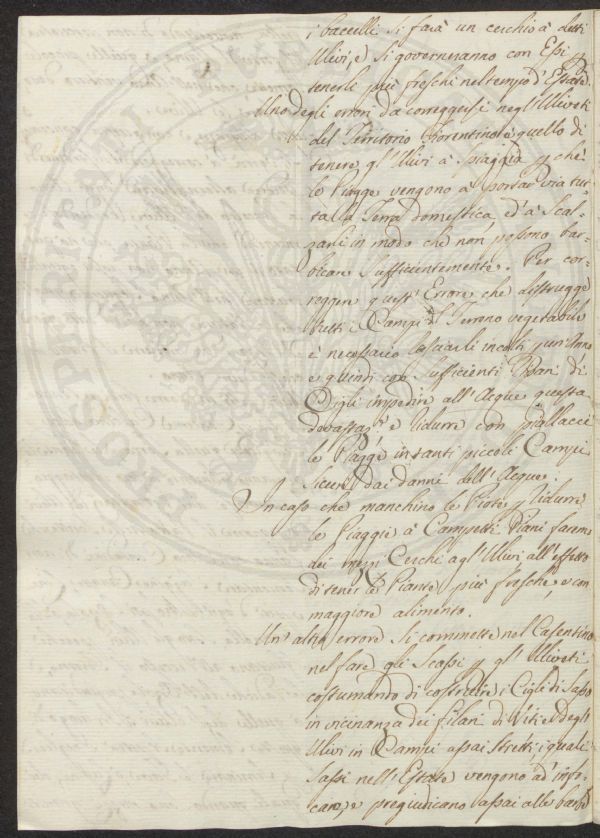 i baccelli si farà un cerchio à detti
Ulivi, e si governeranno con Essi p
tenerli più freschi nel tempo d'Estate.
Uno degli errori da correggersi negl'Uliveti
del Territorio Fiorentino è quello di
tenere gl'Ulivi à Spiaggia p che
le Piagge vengono à portar via tut-
ta la Terra domestica, ed'à Scal-
zarli in modo che non possono bar-
bicare Sufficientemente. Per cor-
reggere quest'Errore che distrugge
tutti i Campi di Terreno vegetabile
è necessario lasciarli incolti p un'Anno
e quindi con Sufficienti Piani di
Cigli impedire all'Acque questa
devastaz.e e ridurre con piallacci
le Piagge in tanti piccoli Campi
Sicuri dai danni dell'Acque.
In caso che manchino le Piote p ridurre
le Piaggie à Campetti Piani faremo
dei mezzi Cerchi agl'Ulivi all'effetto
di tener le Piante più fresche, e con
maggiore alimento.
Un'altro errore si commette nel Casentino
nel fare gli Scassi p gl'Uliveti
costumando di costruire i Cigli di Sasso
in vicinanza dei filari di Viti e degli
Ulivi in Campi assai Stretti, i quali
Sassi nell'Estate vengono ad'info-
care, e pregiudicano assai alle barbe
PROSPERITATI PUB